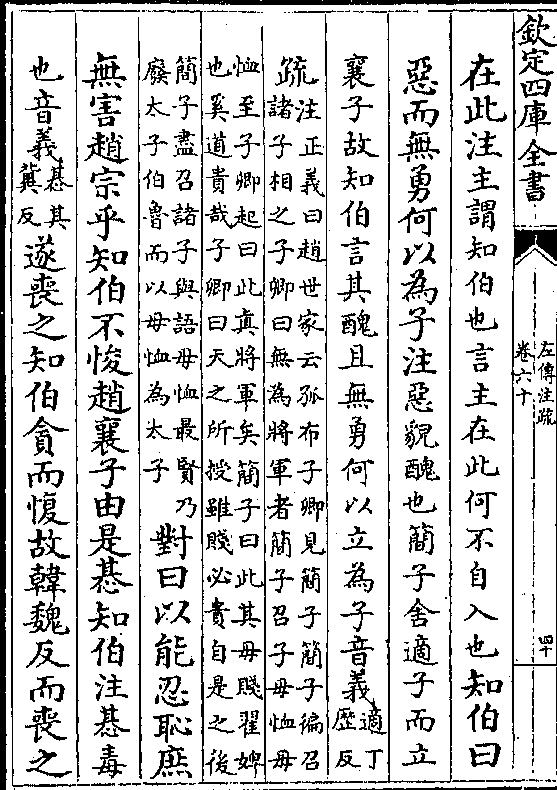 欽定四庫全書
左傳注疏
卷六十
四十
在此注主謂知伯也言主在此何不自入也知伯曰
惡而無勇何以為子注惡貌醜也簡子舍適子而立
襄子故知伯言其醜且無勇何以立為子音義適丁
歷反
疏注正義曰趙世家云孤布子卿見簡子簡子徧召
諸子相之子卿曰無為將軍者簡子召子毋恤毋
恤至子卿起曰此真將軍矣簡子曰此其母賤翟婢
也奚道貴哉子卿曰天之所授雖賤必貴自是之後
簡子盡召諸子與語毋恤最賢乃
廢太子伯魯而以毋恤為太子
對曰以能忍恥庶
無害趙宗乎知伯不悛趙襄子由是惎知伯注惎毒
也音義惎其
冀反
遂喪之知伯貪而愎故韓魏反而喪之